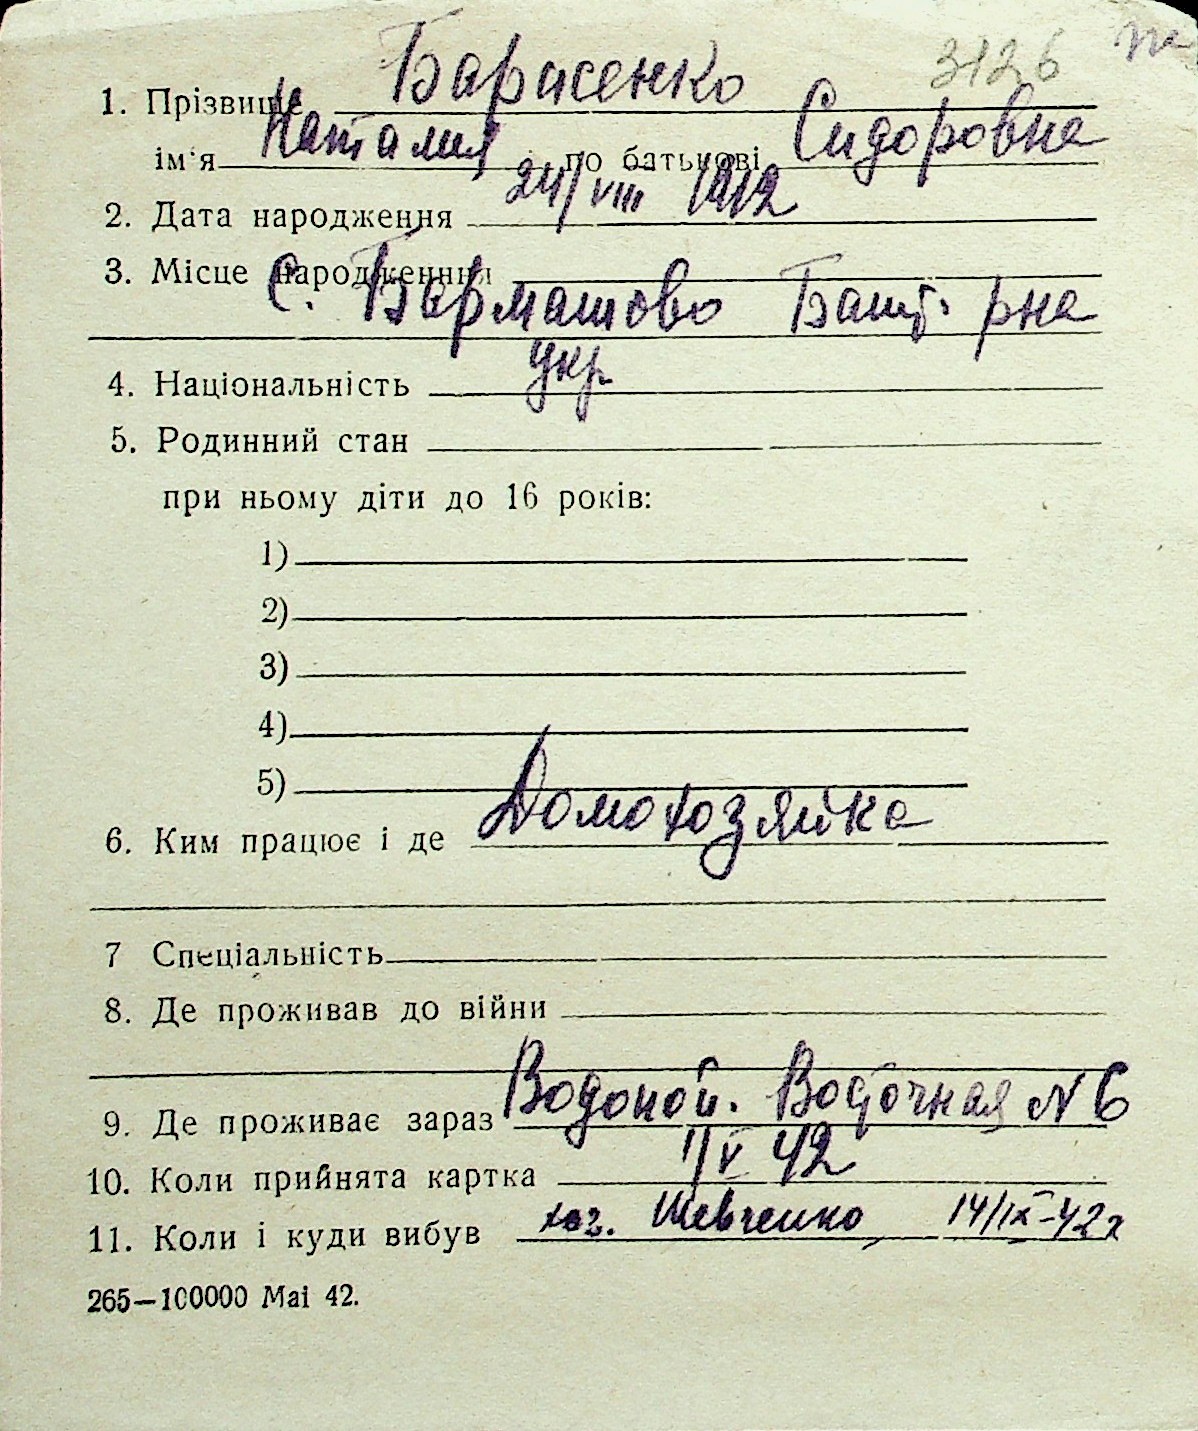 3126
1. Прізвище Барасенко
ім'я Наталия по батькові Сидоровна
2. Дата народження 24/VIII 1912
3. Місце народженння
с. Бармашово Башт. рна
4. Національність укр.
5. Родинний стан
при ньому діти до 16 років:
1)
2)
3)
4)
5)
6. Ким працює і де Домохозяйка
7 Спеціальність
8. Де проживав до війни
9. Де проживає зараз Водопой. Восточная N 6
10. Коли прийнята картка 1/V 42
11. Коли і куди вибув хоз. Шевченко 14/IX-42г
265—100000 Маі 42.